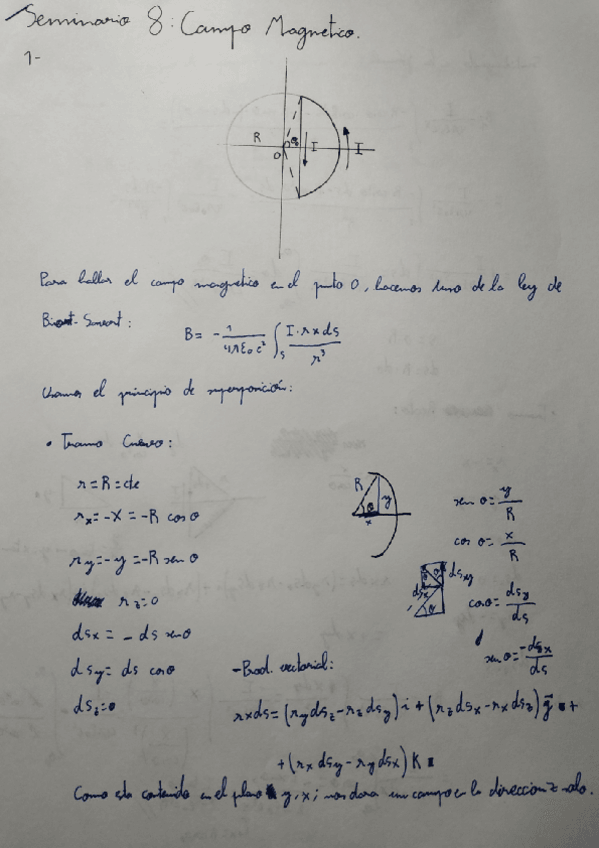 Seminario 8: Campo Magnetico.
1-
R
O
θ
I
I
Para hallar el campo magnetico en el punto O, hacemos uso de la ley de
Biot-Savart:
B = - 1/(4πε₀c²) ∫ₛ I·r×ds/r³
Usamos el principio de superposición:
• Tramo Curvo:
r = R = cte
rₓ = -x = -R cos θ
r_y = -y = -R sen θ
r_z = 0
dsₓ = - ds senθ
ds_y = ds cosθ
ds_z = 0
R
y
θ
x
sen θ = y/R
cos θ = x/R
θ
dsₓ
ds_xy
θ
cosθ = ds_y/ds
senθ = -dsₓ/ds
- Prod. vectorial:
r×ds = (r_y ds_z - r_z ds_y) i + (r_z dsₓ - rₓ ds_z) j +
+ (rₓ ds_y - r_y dsₓ) K
Como esta contenido en el plano y, x; nos dara un campo en la direccion z solo.